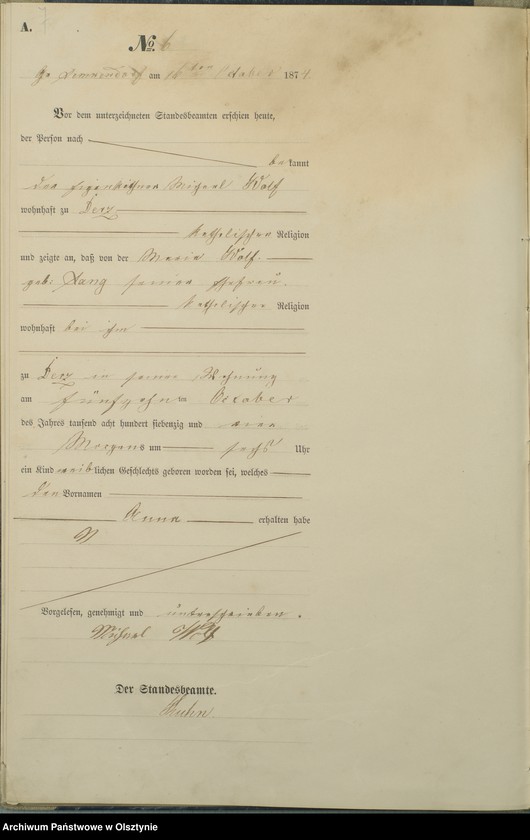 A. 7
No. 6
am 16ten October 1874.
Vor dem unterzeichneten Standesbeamten erschien heute,
der Person nach
bekannt
der Eigenkäthner Michael Wolf
wohnhaft zu Derz
katholischer Religion
und zeigte an, daß von der Maria Wolf
geb. Lang seiner Ehefrau
katholischer Religion
wohnhaft bei ihm
zu Derz in seiner Wohnung
am fünfzehnten October
des Jahres tausend acht hundert siebenzig und vier
Morgens um sechs Uhr
ein Kind weiblichen Geschlechts geboren worden sei, welches
den Vornamen
Anna erhalten habe
Vorgelesen, genehmigt und unterschrieben.
Michael Wolf
Der Standesbeamte.
Archiwum Państwowe w Olsztynie